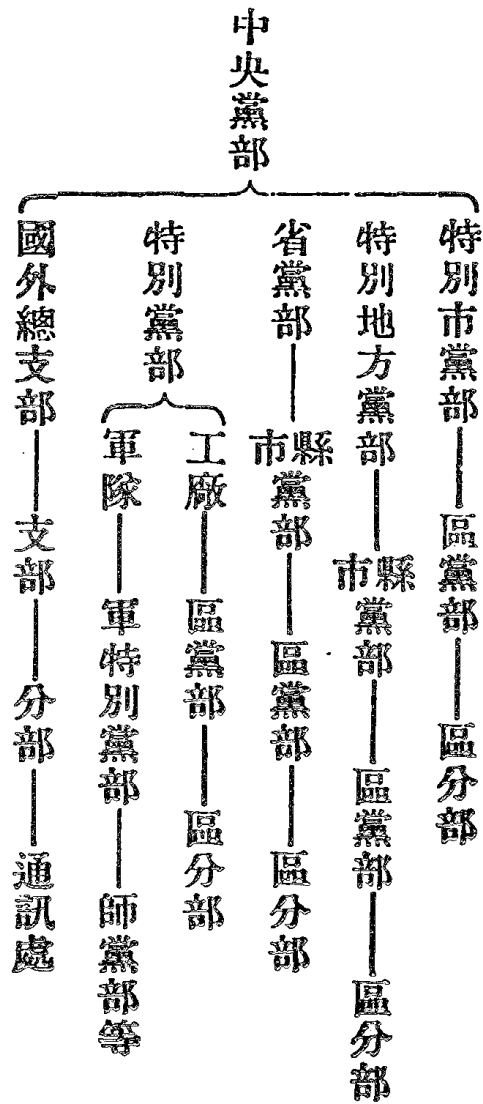 中央黨部
特別市黨部——區黨部——區分部
特別地方黨部——縣市黨部——區黨部——區分部
省黨部——縣市黨部——區黨部——區分部
特別黨部
工廠——區黨部——區分部
軍隊——軍特別黨部——師黨部等
國外總支部——支部——分部——通訊處